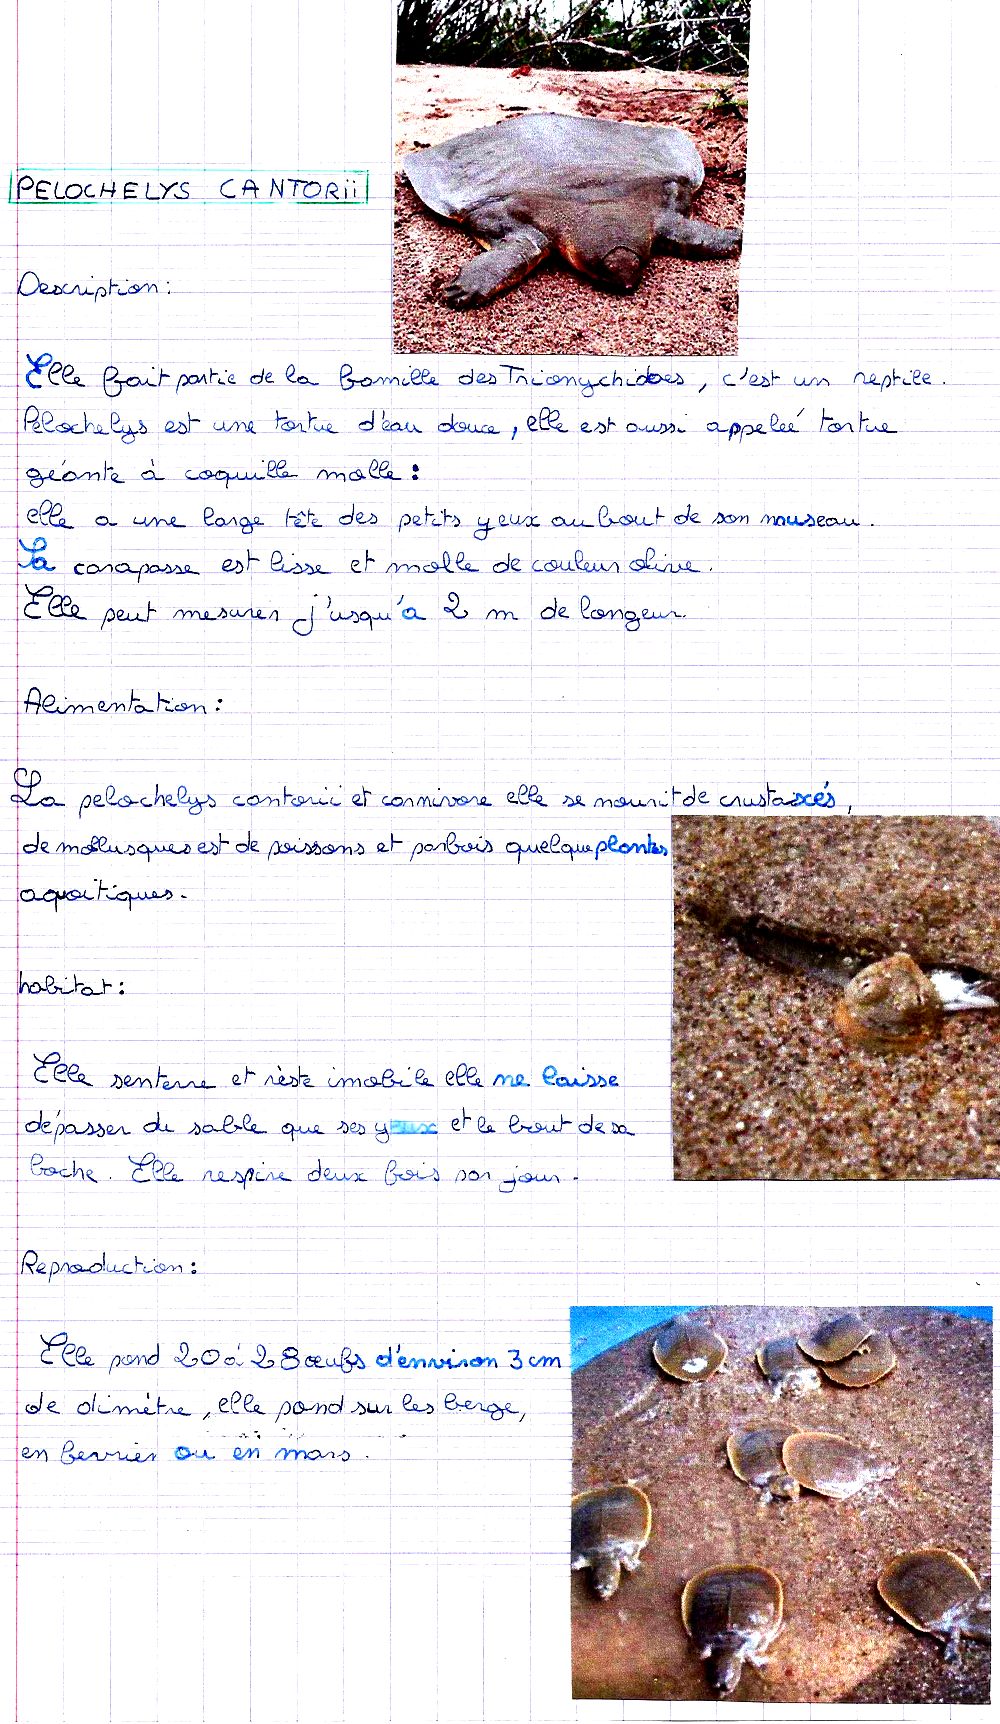 PELOCHELYS CANTORii
Description :
Elle fait partie de la famille des Trionychidaes, c'est un reptile.
Pelochelys est une tortue d'eau douce, elle est aussi appeleé tortue
géante à coquille molle :
elle a une large tête des petits yeux au bout de son museau.
Sa carapasse est lisse et molle de couleur olive.
Elle peut mesurer j'usqu'a 2 m de longeur.
Alimentation :
La pelochelys cantorii et carnivore elle se nourrit de crustaxés,
de mollusques est de poissons et parfois quelque plantes
aquatiques.
habitat :
Elle senterre et rèste imobile elle ne laisse
dépasser du sable que ses yeux et le bout de sa
boche. Elle respire deux fois par jour.
Reproduction :
Elle pond 20 à 28 œufs d'environ 3 cm
de dimètre, elle pond sur les berge,
en fevrier ou en mars.